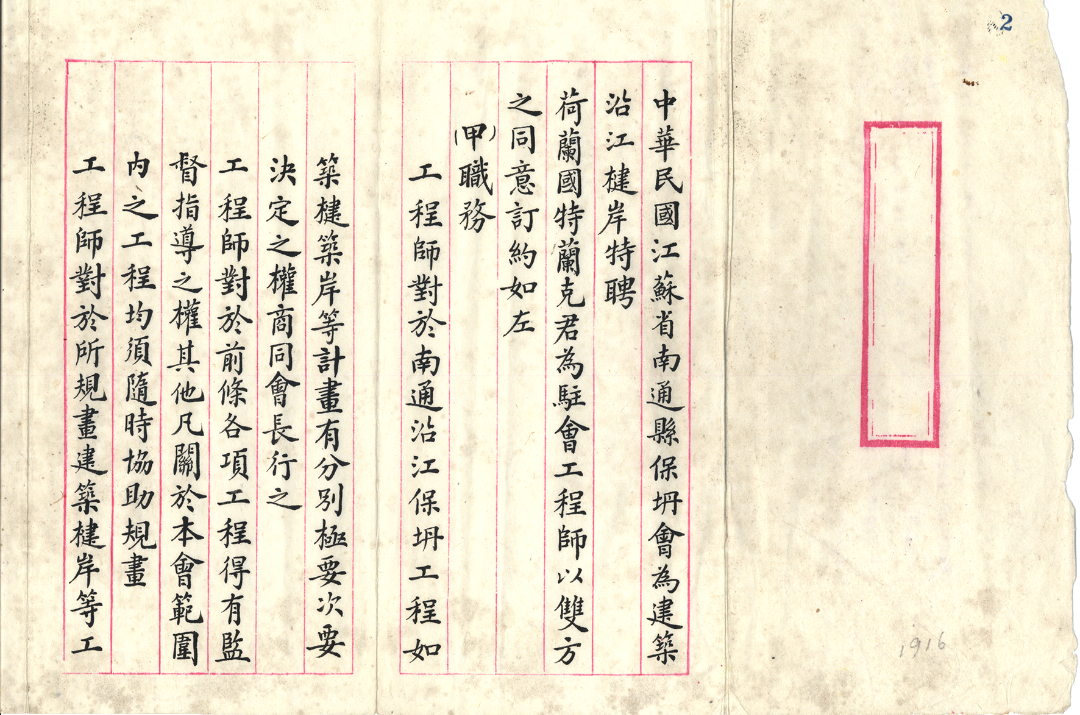 2
1916
中華民國江蘇省南通縣保坍會為建築
沿江楗岸特聘
荷蘭國特蘭克君為駐會工程師以雙方
之同意訂約如左
(甲)職務
工程師對於南通沿江保坍工程如
築楗築岸等計畫有分別極要次要
決定之權商同會長行之
工程師對於前條各項工程得有監
督指導之權其他凡關於本會範圍
內之工程均須隨時協助規畫
工程師對於所規畫建築楗岸等工